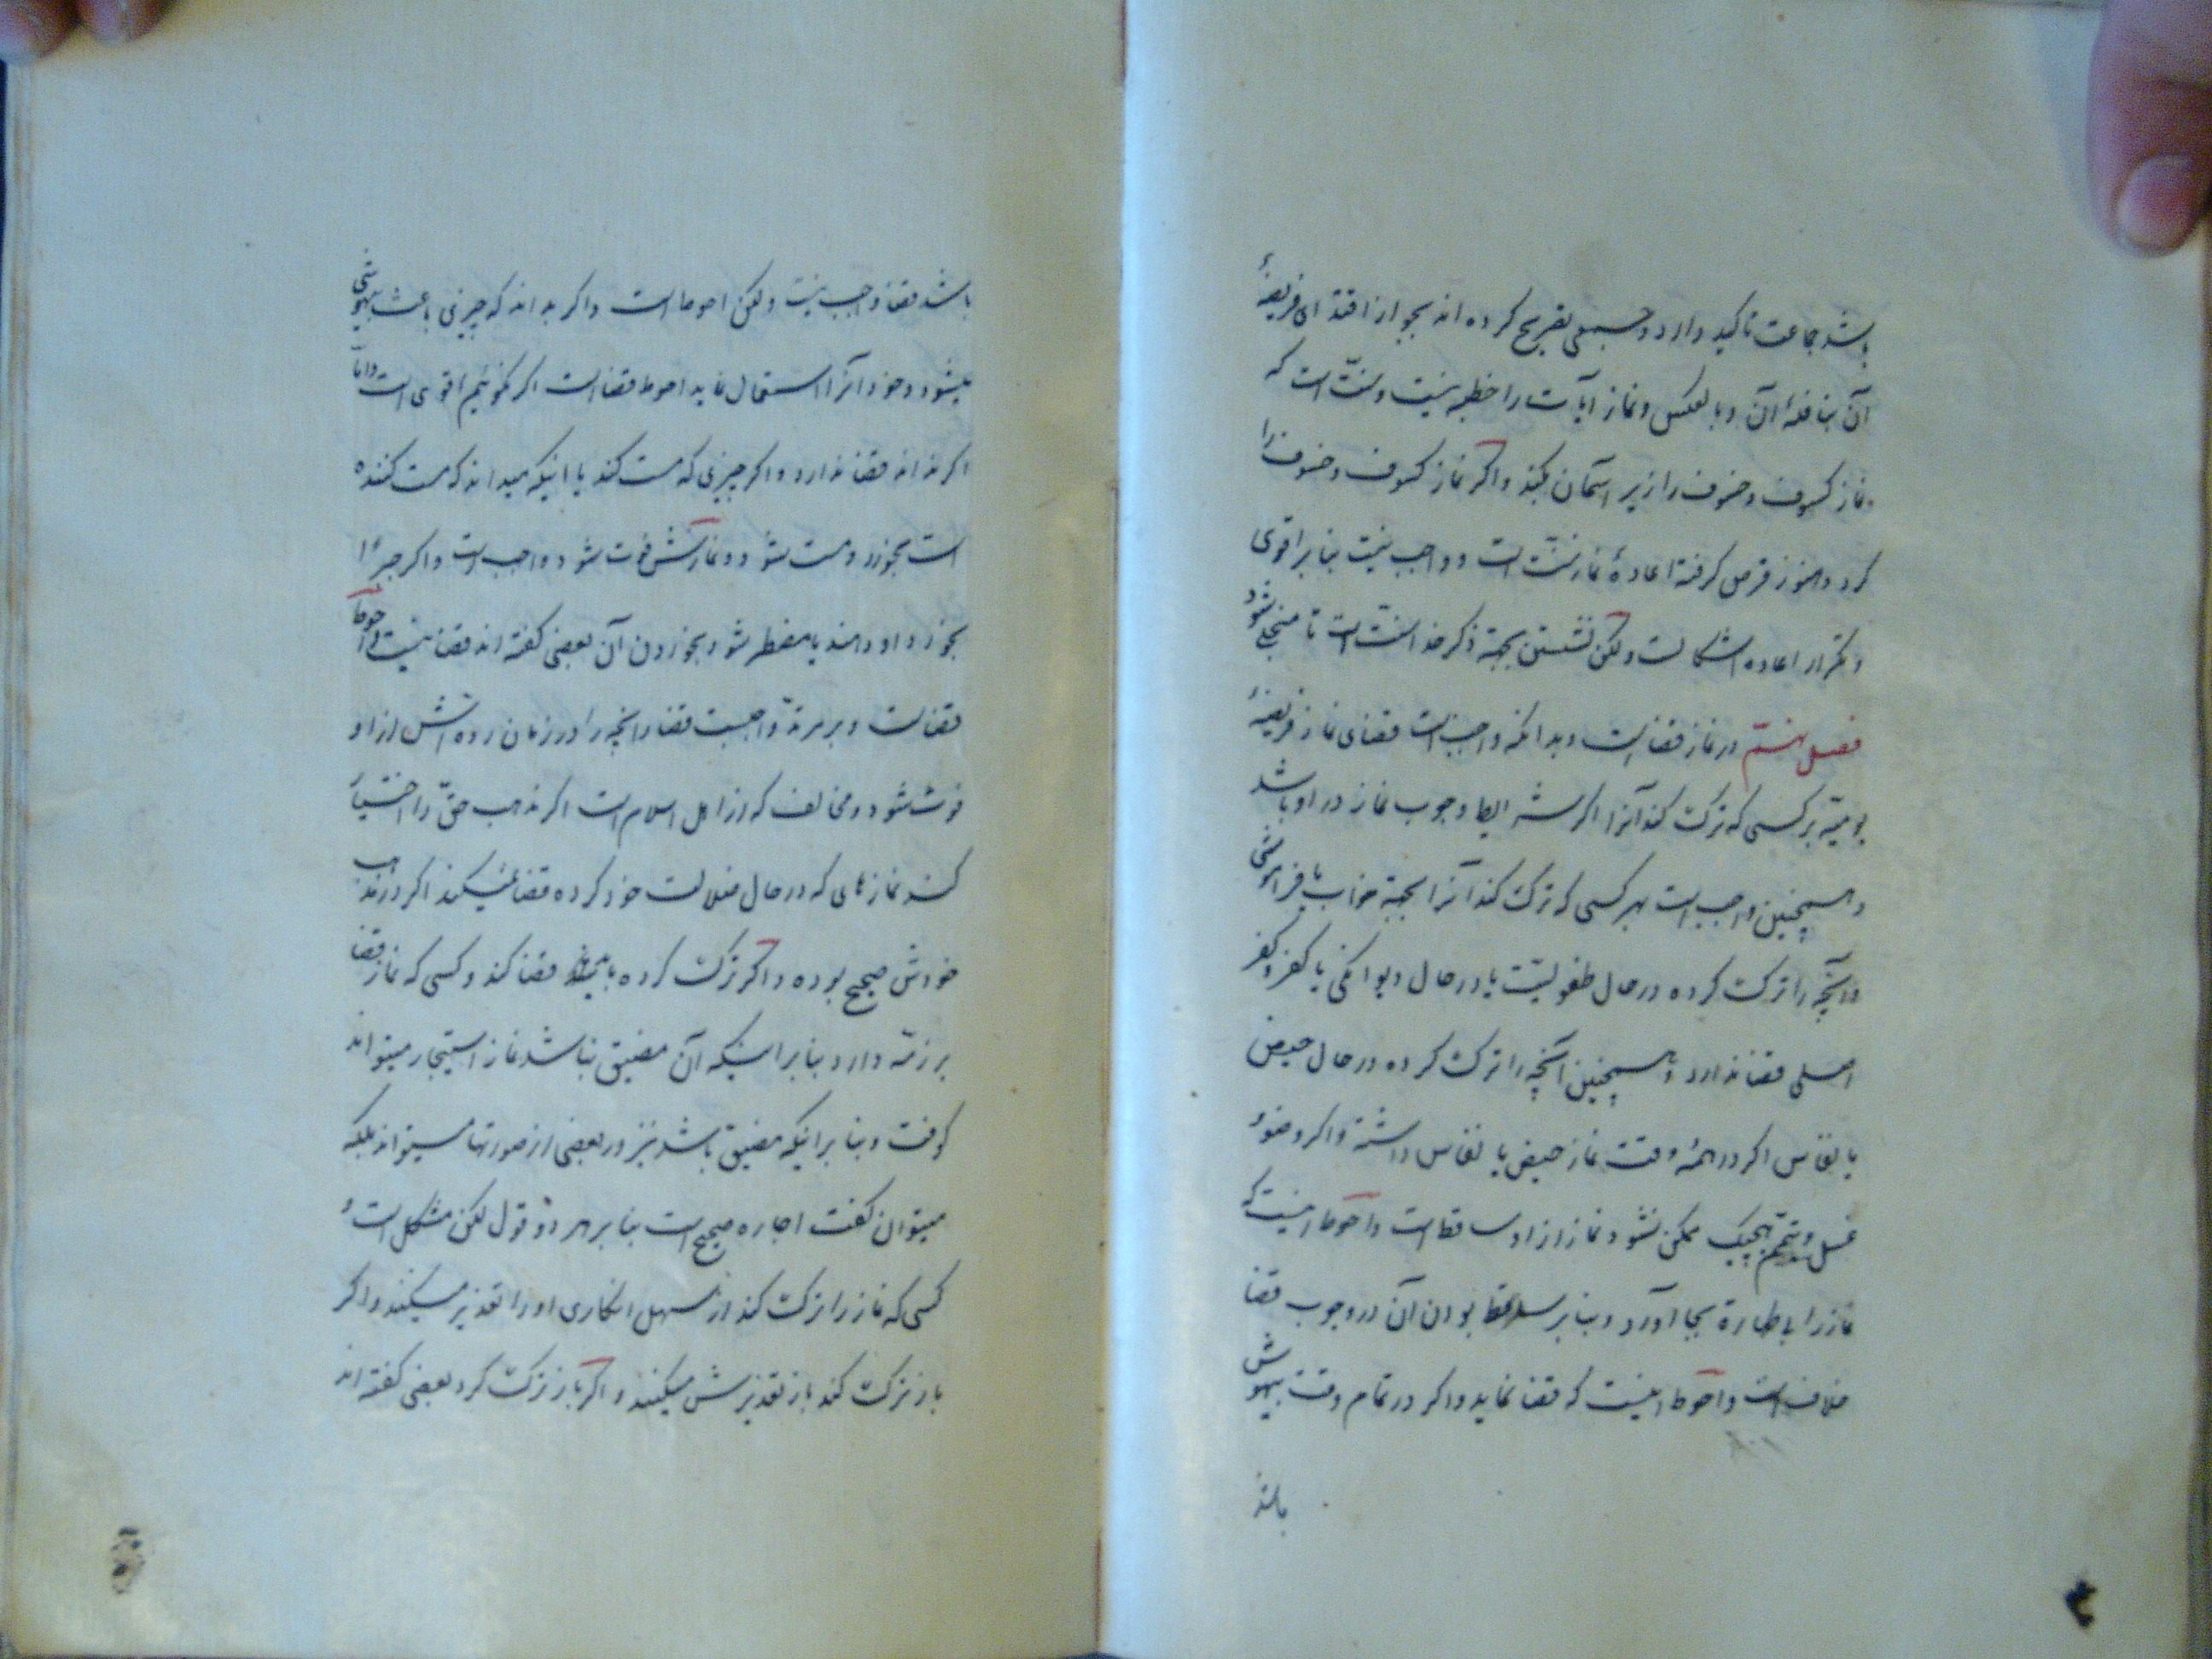 باشد جماعت تاکید دارد و جمعی تصریح کرده اند بجواز اقتدای فریضهٔ
آن بنافلهٔ آن و بالعکس و نماز آیات را خطبه نیست و سنّت است که
نماز کسوف و خسوف را زیر آسمان بکند و اگر نماز کسوف و خسوف را
کرد و هنوز قرص گرفته اعادهٔ نماز سنّت است و واجب نیست بنابر اقوی
و تکرار اعاده اشکالست ولکن نشستن بجهة ذکر خدا سنّت است تا منجلی شود
فصل هشتم در نماز قضا است و بدانکه واجب است قضای نماز فریضهٔ
یومیّه بر کسی که ترک کند آنرا اگر شرایط وجوب نماز در او باشد
و همچنین واجب است بر کسی که ترک کند آنرا بجهة خواب یا فراموشی
و آنچه را ترک کرده در حال طفولیّت یا در حال دیوانگی یا کفر و کفر
اصلی قضا ندارد و همچنین آنچه را ترک کرده در حال حیض
یا نفاس اگر در همهٔ وقت نماز حیض یا نفاس داشته و اگر وضوء
غسل و تیمّم هیچیک ممکن نشود نماز از او ساقط است و احوط اینست که
نماز را با طهارة بجا آورد و بنابر ساقط بودن آن در وجوب قضا
خلاف است و احوط اینست که قضا نماید و اگر در تمام وقت بیهوش
باشد
باشد قضا واجب نیست ولکن احوط است و اگر بداند که چیزی باعث بیهوشی
میشود و خود آنرا استعمال نماید احوط قضا است اگر نگوئیم اقوی است و امّا
اگر نداند قضا ندارد و اگر چیزی که مست کند با اینکه میداند که مست کننده
است بخورد و مست شود و نمازش فوت شود واجب است و اگر جبرًا
بخورد او دهند یا مضطر شود بخوردن آن بعضی گفته اند قضا نیست و احوط
قضا است و بر مرتدّ واجبست قضا آنچه را در زمان ردّه اش از او
فوت شود و مخالف که از اهل اسلام است اگر مذهب حقّ را اختیار
کند نمازهای که در حال ضلالت خود کرده قضا نمیکند اگر در مذهب
خودش صحیح بوده و اگر ترک کرده باید قضا کند و کسی که نماز قضا
بر ذمّه دارد بنابر اینکه آن مضیّق نباشد نماز استیجار میتواند
گرفت و بنابر اینکه مضیّق باشد نیز در بعضی از صورتها میتواند بلکه
میتوان گفت اجاره صحیح است بنابر هر دو قول لکن مشکل است و
کسی که نماز را ترک کند از سهل انگاری او را تعذیر میکنند و اگر
باز ترک کند باز تعذیرش میکنند و اگر باز ترک کرد بعضی گفته اند